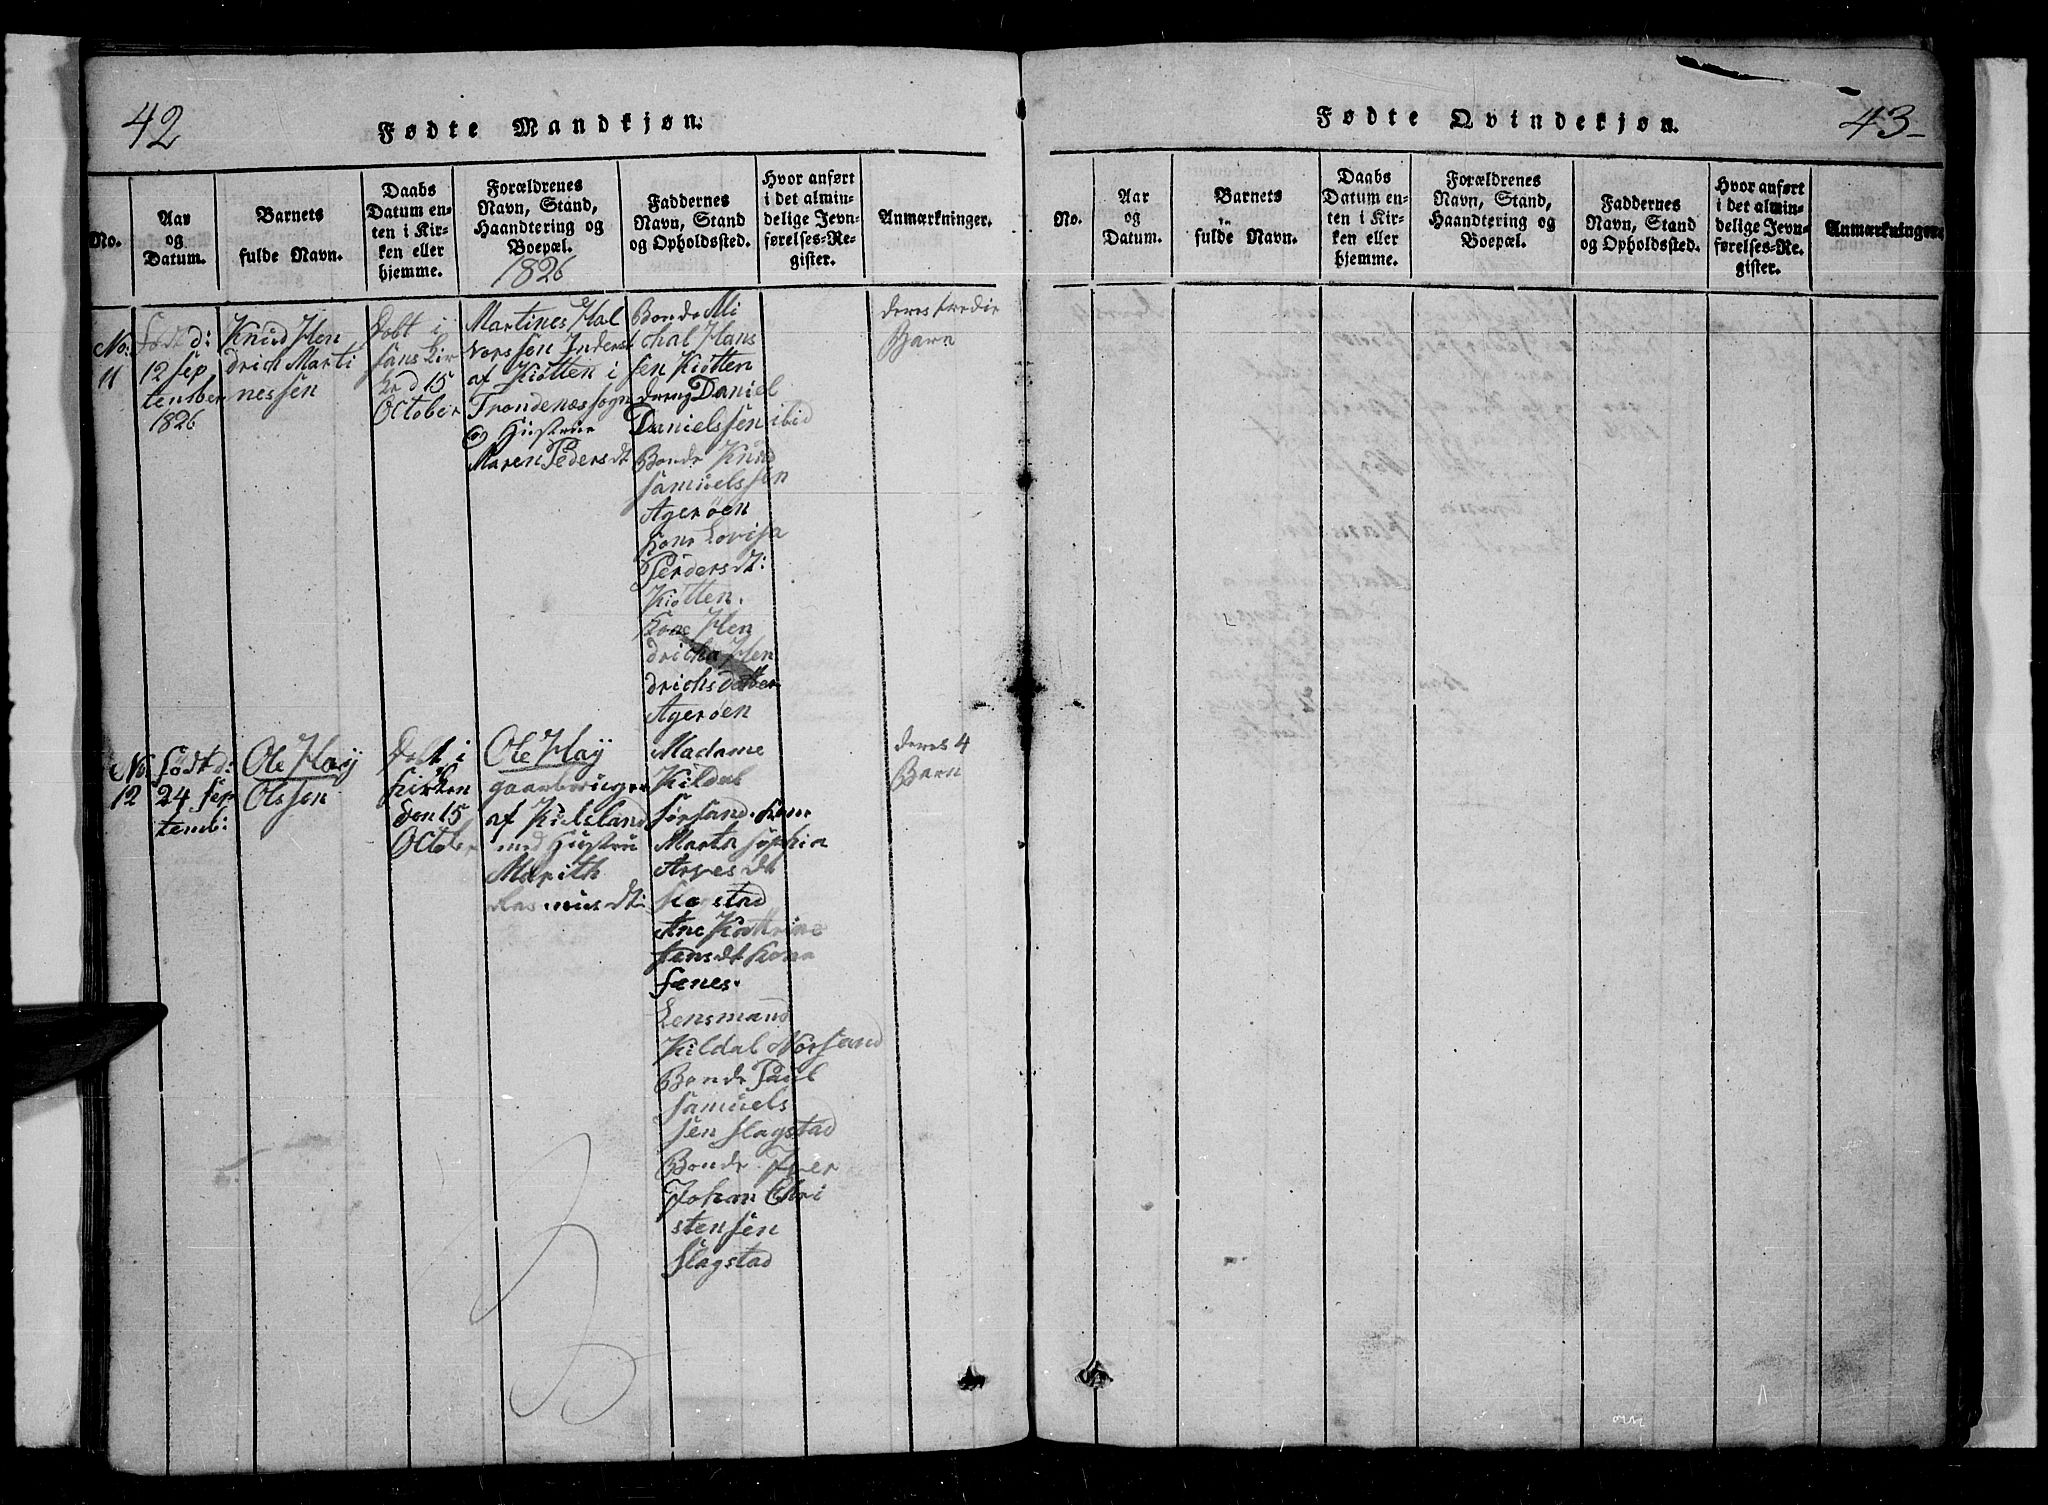 42
Fødte Mandkjøn.
No.
Aar
og
Datum.
Barnets
fulde Navn.
Daabs
Datum en-
ten i Kir-
ken eller
hjemme.
Forældrenes
Navn, Stand,
Haandtering og
Boepæl.
1826
Faddernes
Navn, Stand
og Opholdssted.
Hvor anført
i det almin-
delige Jevn-
førelses-Re-
gister.
Anmærkninger.
No:
11
Født d:
12 Sep
tember
1826
Knud Hen
drich Marti
nessen
Døbt i
Sans Kir
d 15
October
Martines Hal
vorssøn Inderst
af Kiøtten i
Trondenæs sogn
og Hustrue
Maren Pedersdt
Bonde Mi
chal Hans
sen Kiøtten
Dreng Daniel
Danielssen ibid
Bonde Knud
Samuelssen
Agerøen
Kone Lovisa
Pedersdt:
Kiøtten.
Kone Hen
dricha Hen
drichsdatter
Agerøen
deres tredie
Barn
No
12
Født d:
24 Sep
temb:
Ole Høy
Olssøn
Døbt i
Kirken
den 15
October
Ole Høy
gaardbruger
af Kielsland
med Hustru
Marith
Rasmusdt:
Madame
Kildal
Sørsand. Kone
Marta Sophia
Arnesdt
Slagstad
Ane Kathrine
Hansdt Kone
Fænes.
Lensmand
Kildal Nørsand
Bonde Paul
Samuels
sen Slagstad
Bonde Iver
Johan Chri
stensen
Slagstad
deres 4
Barn
Fødte Qvindekjøn.
43
No.
Aar
og
Datum.
Barnets
fulde Navn.
Daabs
Datum en-
ten i Kir-
ken eller
hjemme.
Forældrenes
Navn, Stand,
Haandtering og
Boepæl.
Faddernes
Navn, Stand
og Opholdssted.
Hvor anført
i det almin-
delige Jevn-
førelses-Re-
gister.
Anmærkninger.